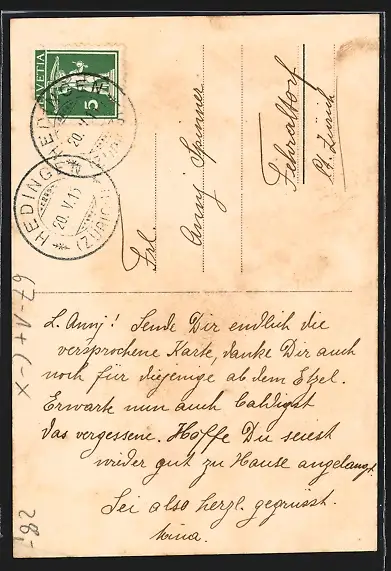 HELVETIA
5
HEDINGEN
20.V.1
(ZÜRICH)
HEDINGEN
20.V.1
(ZÜRICH)
Frl.
Anny Spinner
Fehraltorf
Kt. Zürich
L. Anny! Sende Dir endlich die
versprochene Karte, danke Dir auch
noch für diejenige ab dem Etzel.
Erwarte nun auch baldigst
das vergessene. Hoffe Du seiest
wieder gut zu Hause angelangt.
Sei also herzl. gegrüsst.
Mina.
28,-